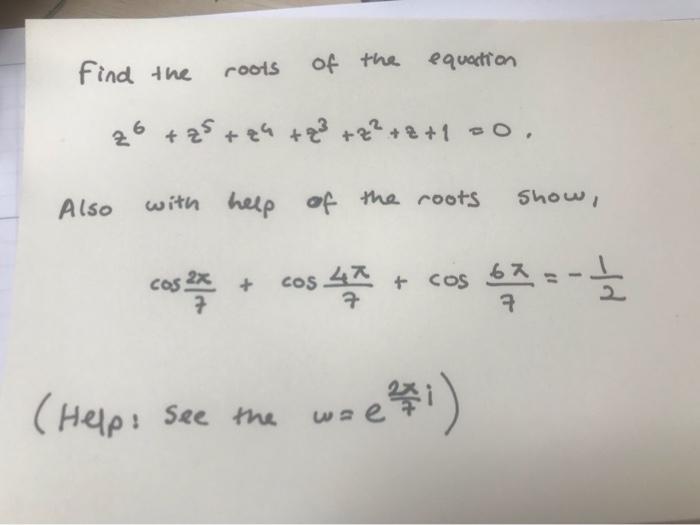 Find the roots of the equation
z⁶ + z⁵ + z⁴ + z³ + z² + z + 1 = 0.
Also with help of the roots show,
cos 2π/7 + cos 4π/7 + cos 6π/7 = - 1/2
(Help: See the w = e^(2π/7 i))